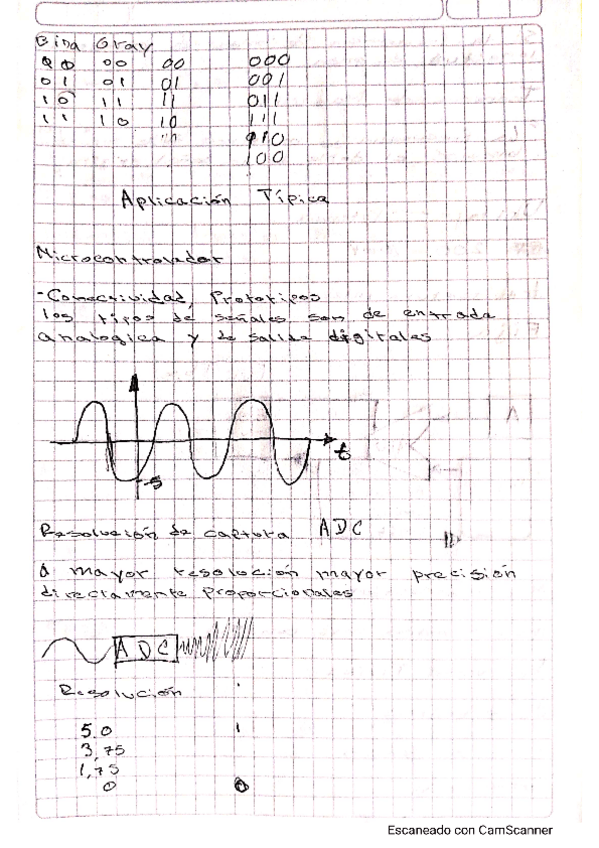 Bina Gray
00 00 00 000
01 01 01 001
10 11 11 011
11 10 10 111
110
100
Aplicación Típica
Microcontrolador
-Conectividad, Prototipos
los tipos de señales son de entrada
analogica y de salida digitales
t
-5
Resolución de captura ADC
a mayor resolución mayor precisión
directamente proporcionales
ADC
Resolución
5.0 1
3,75
1,75
0 0
Escaneado con CamScanner